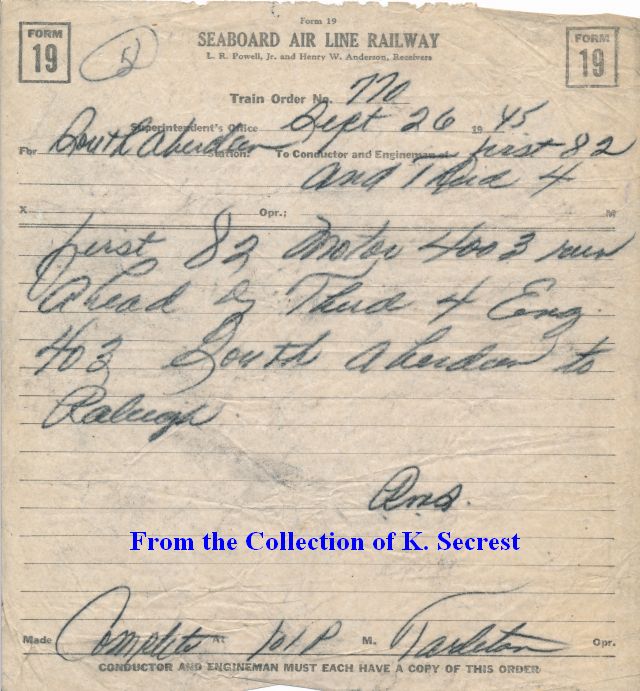 Form 19
FORM 19
SEABOARD AIR LINE RAILWAY
FORM 19
L. R. Powell, Jr. and Henry W. Anderson, Receivers
Train Order No. 770
Superintendent's Office Sept 26 1945
For South Aberdeen Station. To Conductor and Engineman of first 82
and Third 4
X Opr.; M
first 82 Motor 4003 run
Ahead of Third 4 Eng
403 South Aberdeen to
Raleigh
From the Collection of K. Secrest
Made Complete At 101 P M. Tarleton Opr.
CONDUCTOR AND ENGINEMAN MUST EACH HAVE A COPY OF THIS ORDER